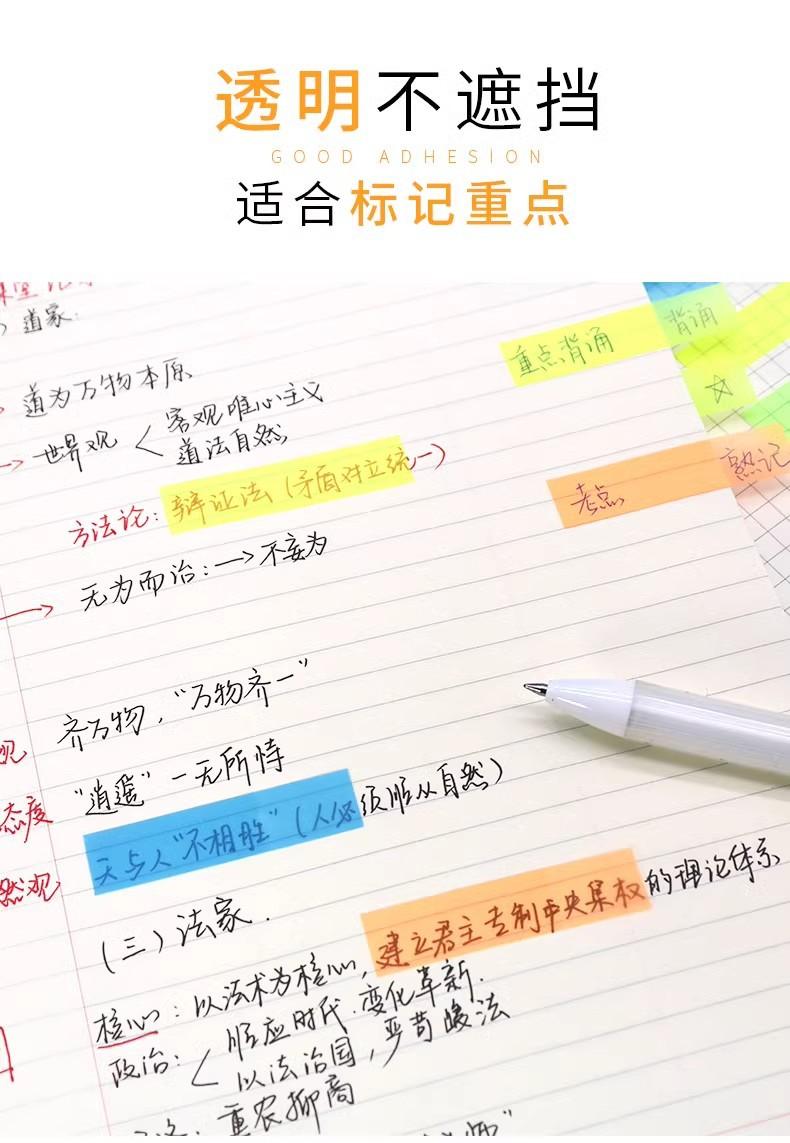 透明不遮挡
GOOD ADHESION
适合标记重点
道家:
重点背诵
背诵
道为万物本原
世界观 < 客观唯心主义
道法自然
☆
方法论: 辩证法 (矛盾对立统一)
考点
熟记
无为而治: → 不妄为
齐万物, “万物齐一”
观
“逍遥” 一无所恃
态度
天与人“不相胜” (人必须顺从自然)
然观
(三) 法家.
核心: 以法术为核心, 建立君主专制中央集权的理论体系
政治: < 顺应时代. 变化革新.
以法治国, 严苛峻法
重农抑商